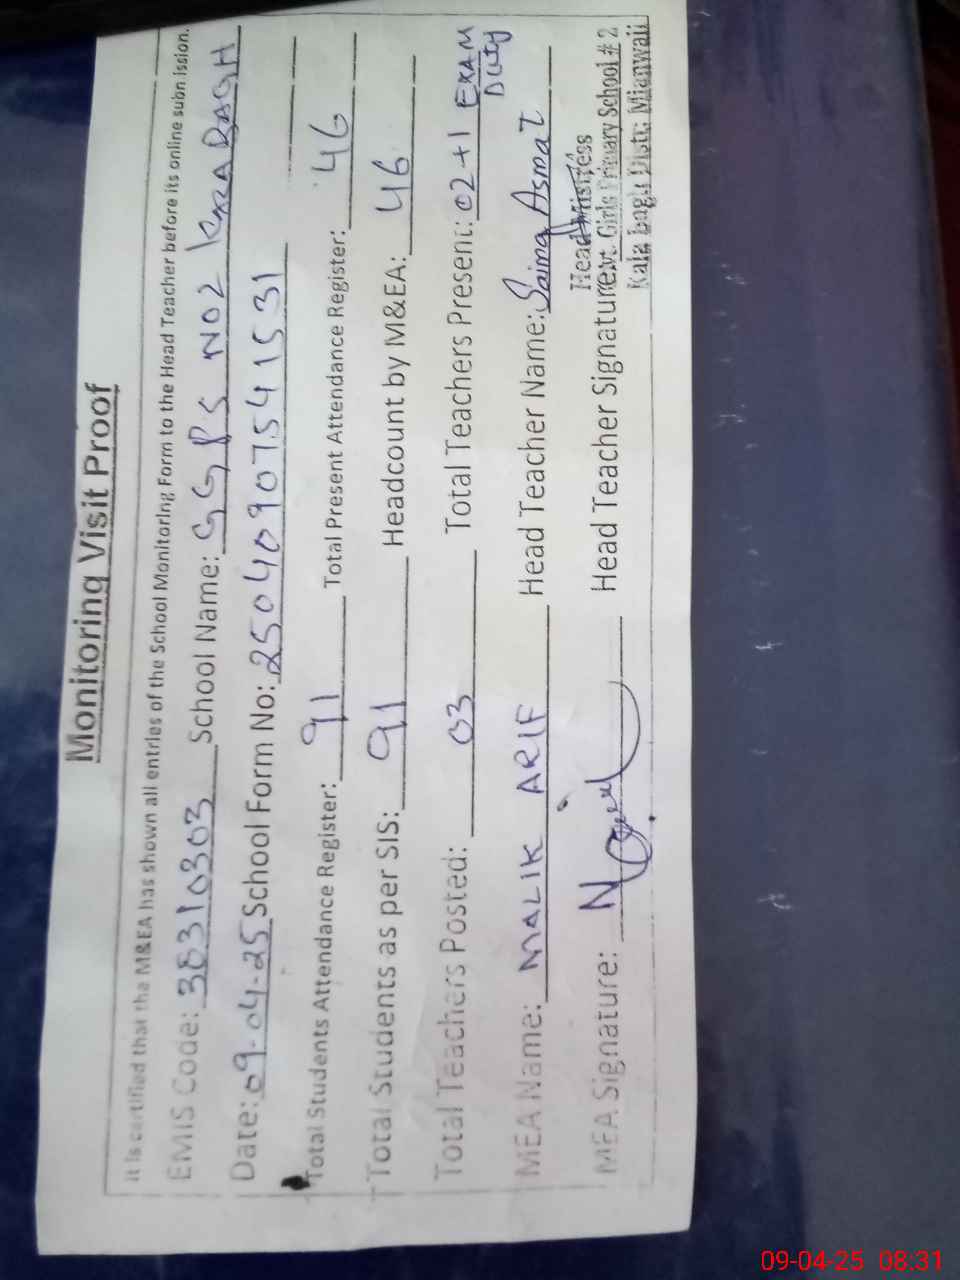 Monitoring Visit Proof
It is certified that the M&EA has shown all entries of the School Monitoring Form to the Head Teacher before its online submission.
EMIS Code: 38310303 School Name: GGPS NO2 KALABAGH
Date: 09-04-25 School Form No: 2504090754 1531
Total Students Attendance Register: 91 Total Present Attendance Register: 46
Total Students as per SIS: 91 Headcount by M&EA: 46
Total Teachers Posted: 03 Total Teachers Present: 02+1 EXAM Duty
MEA Name: MALIK ARIF Head Teacher Name: Saima Asmat
MEA Signature: Head Teacher Signature:
Head Mistress
Govt. Girls Primary School # 2
Kala Bagh Distt: Mianwali
09-04-25 08:31